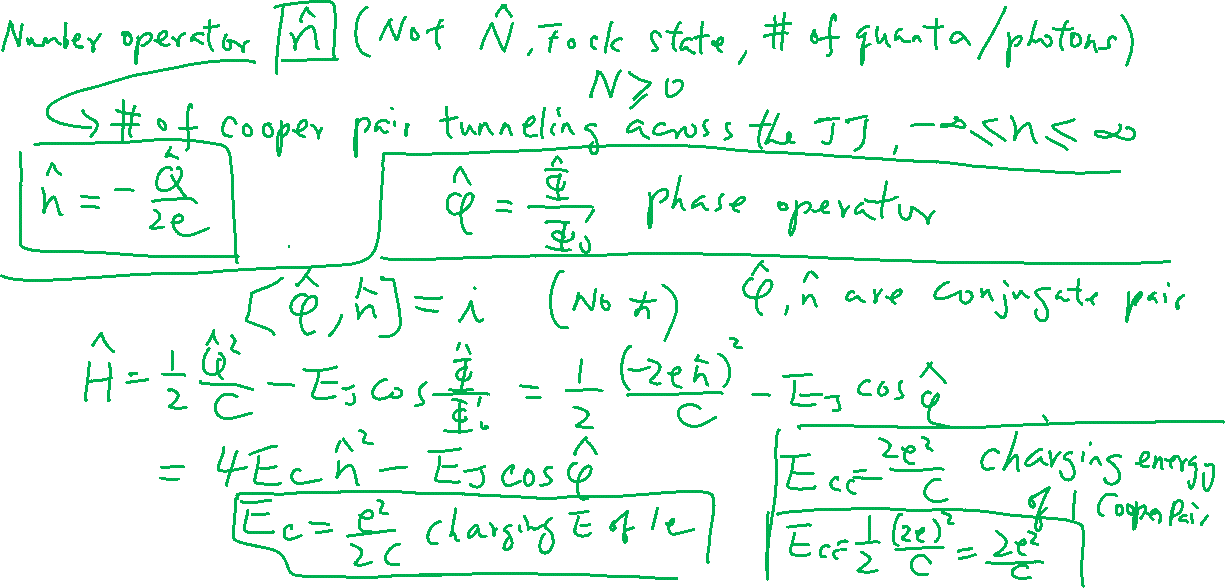 Number operator n̂ (Not N̂, Fock state, # of quanta/photons)
N ≥ 0
→ # of cooper pair tunneling across the JJ, -∞ ≤ n ≤ ∞
n̂ = - Q̂/2e    φ̂ = Φ̂/Φ₀' phase operator
[φ̂, n̂] = i (No ħ) φ̂, n̂ are conjugate pair
Ĥ = 1/2 Q̂²/C - E_J cos Φ̂/Φ₀' = 1/2 (-2en̂)²/C - E_J cos φ̂
= 4E_C n̂² - E_J cos φ̂
E_CC = 2e²/C charging energy of 1 Cooper Pair
E_C = e²/2C charging E of 1e
E_CC = 1/2 (2e)²/C = 2e²/C